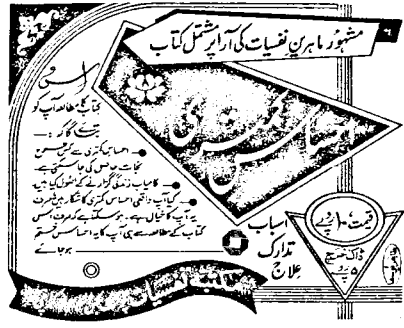 مشہور ماہرینِ نفسیات کی آرا پر مشتمل کتاب
احساسِ کمتری
اس
کتاب کا مطالعہ آپ کو
بتائے گا کہ :—
احساسِ کمتری سے کیسے
نجات حاصل کی جا سکتی ہے
کامیاب زندگی گزارنے کے اصول کیا ہیں
کیا آپ واقعی احساسِ کمتری کا شکار ہیں یا صرف
یہ آپ کا خیال ہے۔ ہو سکتا ہے کہ صرف اس
کتاب کے مطالعہ سے ہی آپ کا یہ احساس ختم
ہو جائے
اسباب
تدارک
علاج
قیمت ۱۰ روپے
ڈاک خرچ
۵ روپے
مکتبہ نفسیات